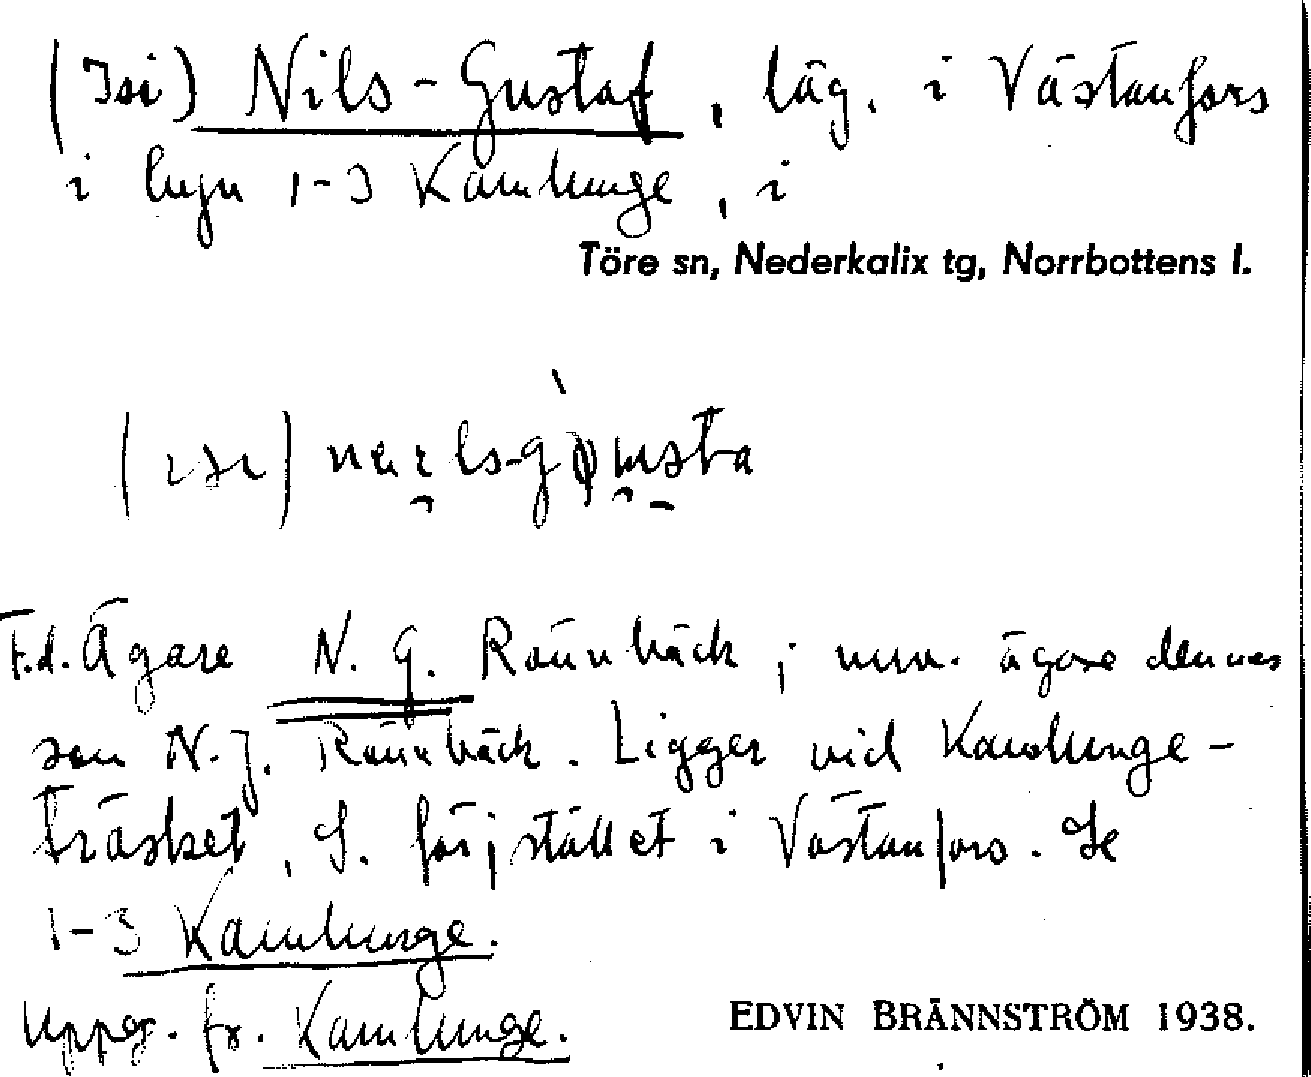 (Isi) Nils-Gustaf, läg. i Västanfors
i byn 1-3 Kamlunge, i
Töre sn, Nederkalix tg, Norrbottens l.
F.d. Ägare N. G. Rönnbäck; nuv. ägare dennes
son N.J. Rönnbäck. Ligger vid Kamlunge-
träsket, S. färjstället i Västanfors. Se
1-3 Kamlunge.
Uppg. fr. Kamlunge.
EDVIN BRÄNNSTRÖM 1938.